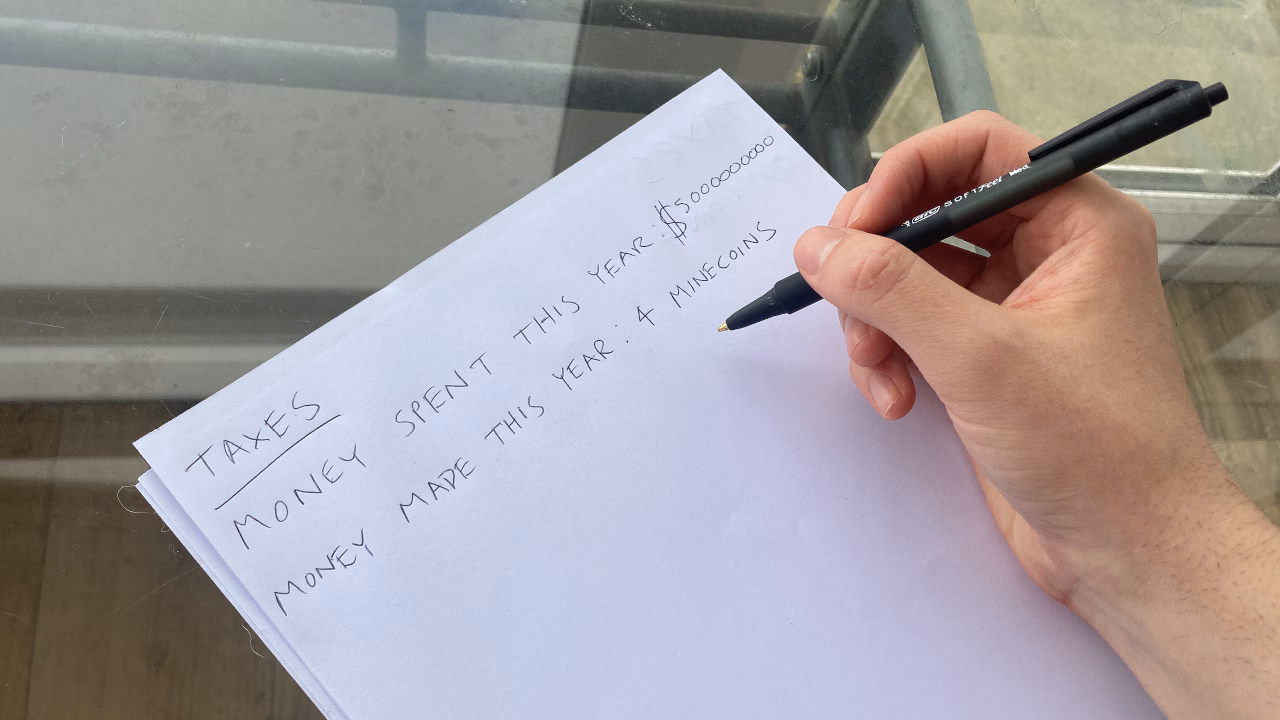 TAXES
MONEY SPENT THIS YEAR: $5000000000
MONEY MADE THIS YEAR: 4 MINECOINS
BIC SOFTFeel Med